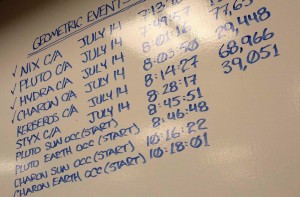 GEOMETRIC EVENT
✓ NIX C/A JULY 14
✓ PLUTO C/A JULY 14 7:49:57
✓ HYDRA C/A JULY 14 8:01:16
✓ CHARON C/A JULY 14 8:03:50 29,448
KERBEROS C/A JULY 14 8:14:27 68,966
STYX C/A JULY 14 8:28:17 39,051
PLUTO SUN OCC (START) 8:45:51
PLUTO EARTH OCC (START) 8:46:48
CHARON SUN OCC (START) 10:16:22
CHARON EARTH OCC (START) 10:18:01